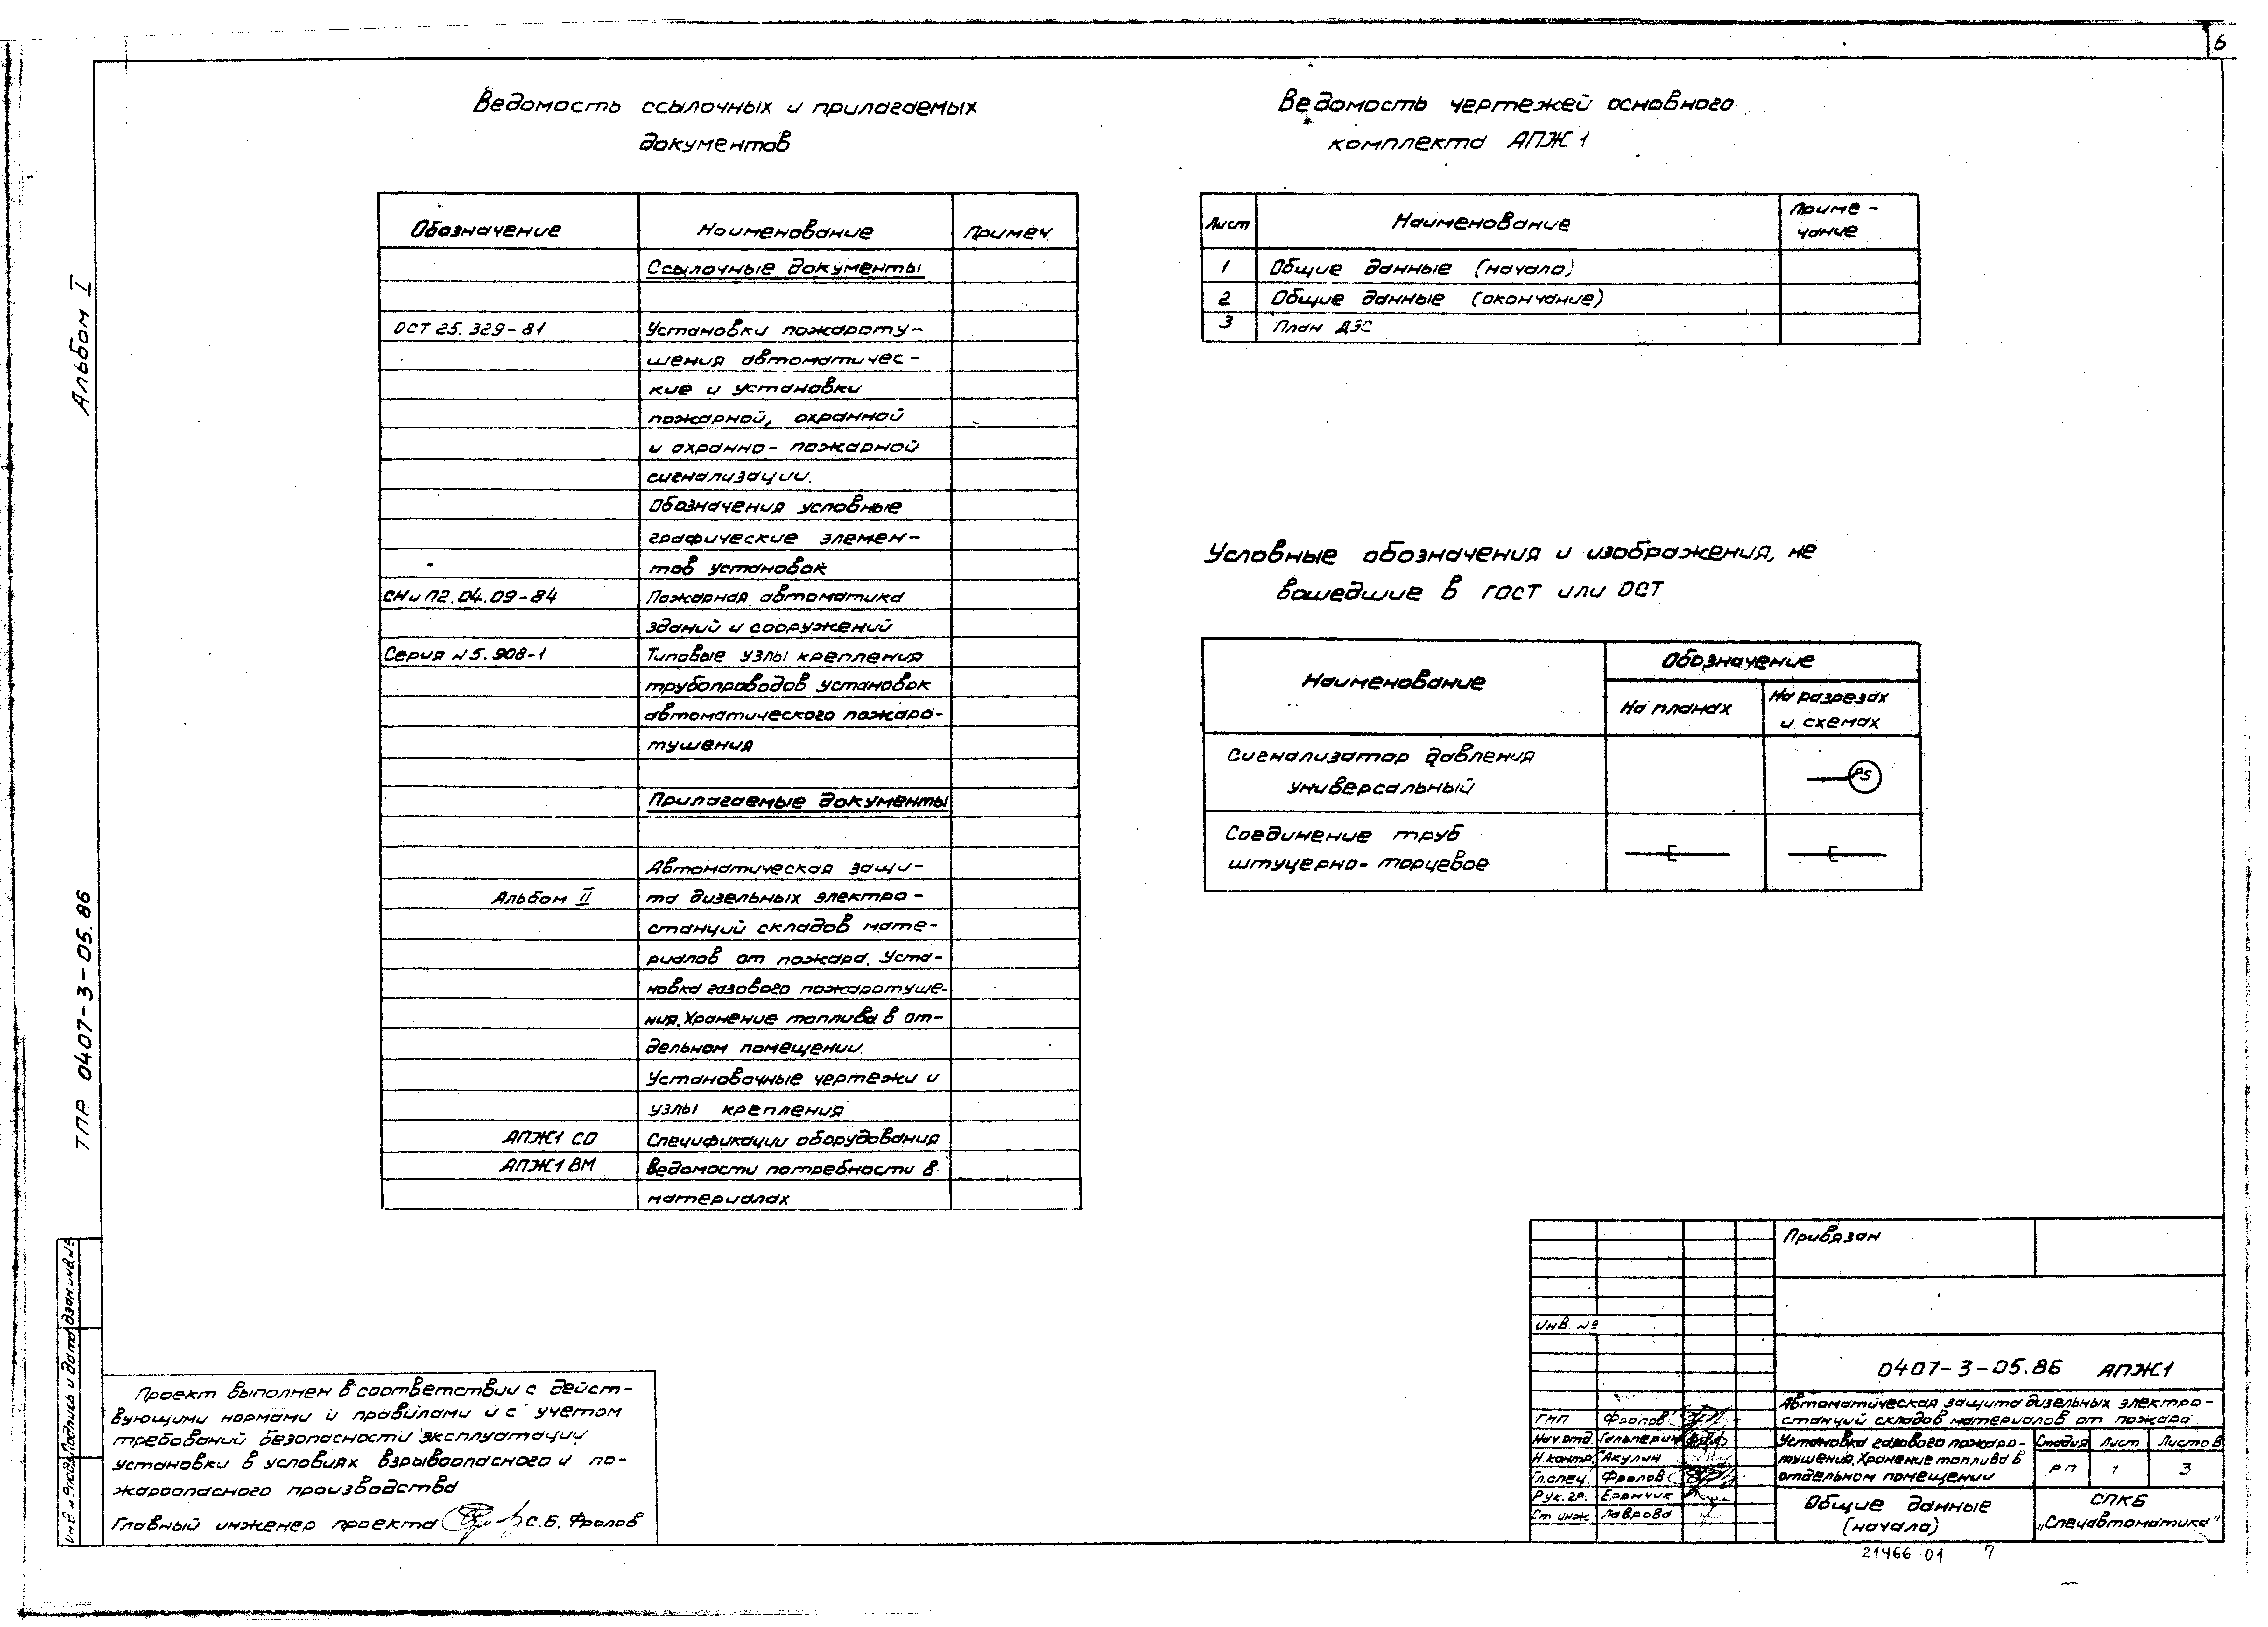 6
Альбом I
ТПР 0407-3-05.86
Ведомость ссылочных и прилагаемых
документов
Обозначение Наименование Примеч
Ссылочные документы
ОСТ 25.329-81 Установки пожароту-
шения автоматичес-
кие и установки
пожарной, охранной
и охранно-пожарной
сигнализации.
Обозначения условные
графические элемен-
тов установок
СНиП2.04.09-84 Пожарная автоматика
зданий и сооружений
Серия N5.908-1 Типовые узлы крепления
трубопроводов установок
автоматического пожаро-
тушения
Прилагаемые документы
Автоматическая защи-
Альбом II та дизельных электро-
станций складов мате-
риалов от пожара. Уста-
новка газового пожаротуше-
ния. Хранение топлива в от-
дельном помещении.
Установочные чертежи и
узлы крепления
АПЖ1 СО Спецификации оборудования
АПЖ1 ВМ Ведомости потребности в
материалах
Ведомость чертежей основного
комплекта АПЖ1
Лист Наименование Приме-
чание
1 Общие данные (начало)
2 Общие данные (окончание)
3 План ДЭС
Условные обозначения и изображения, не
вошедшие в ГОСТ или ОСТ
Наименование Обозначение
На планах На разрезах
и схемах
Сигнализатор давления
универсальный
PS
Соединение труб
штуцерно-торцевое
Инв. N подл. Подпись и дата Взам. инв. №
Проект выполнен в соответствии с дейст-
вующими нормами и правилами и с учетом
требований безопасности эксплуатации
установки в условиях взрывоопасного и по-
жароопасного производства
Главный инженер проекта С.Б. Фролов
Привязан
Инв. №
0407-3-05.86 АПЖ1
Автоматическая защита дизельных электро-
станций складов материалов от пожара
ГИП Фролов
Нач.отд. Гальперин
Н.контр. Акулин
Гл.спец. Фролов
Рук.гр. Еранчик
Ст.инж. Лаврова
Установка газового пожаро-
тушения. Хранение топлива в
отдельном помещении
Стадия Лист Листов
РП 1 3
Общие данные
(начало)
СПКБ
„Спецавтоматика"
21466-01 7